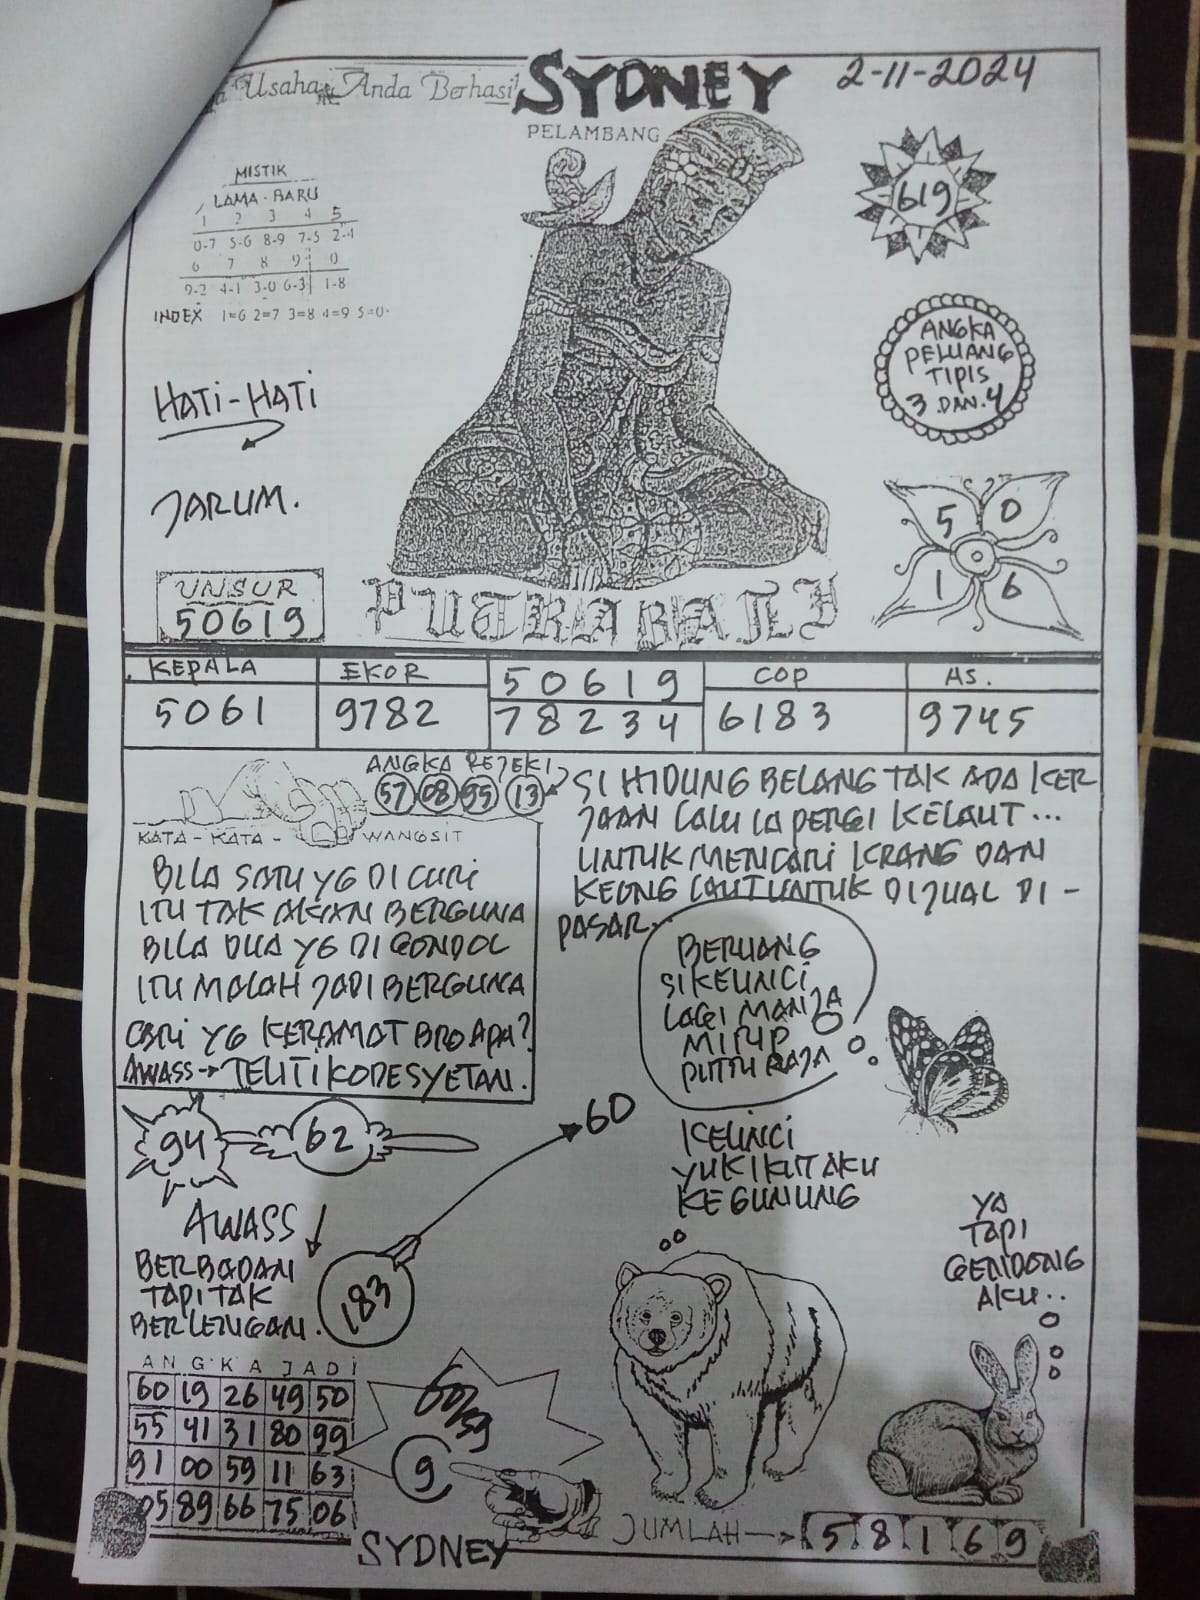 Usaha Anda Berhasil
SYDNEY
2-11-2024
PELAMBANG
MISTIK
LAMA - BARU
1 2 3 4 5
0-7 5-6 8-9 7-5 2-4
6 7 8 9 0
9-2 4-1 3-0 6-3 1-8
INDEX 1=6 2=7 3=8 4=9 5=0
619
ANGKA
PELUANG
TIPIS
3 DAN 4
HATI-HATI
JARUM.
5 0
1 6
UNSUR
50619
PUTRA BALI
KEPALA EKOR 50619 COP AS.
5061 9782 78234 6183 9745
ANGKA REJEKI
57 08 95 13
KATA - KATA - WANGSIT
BILA SATU YG DI CURI
ITU TAK AKAN BERGUNA
BILA DUA YG DI GONDOL
ITU MALAH JADI BERGUNA
CARI YG KERAMAT BRO APA?
AWASS → TELITI KODE SYETAN.
SI HIDUNG BELANG TAK ADA KER
JAAN LALU IA PERGI KELAUT...
UNTUK MENCARI KRANG DAN
KEONG LAUT UNTUK DIJUAL DI -
PASAR..
BERUANG
SI KELINCI
LAGI MANJA
MIRIP
PUTRI RAJA
94 62
60
KELINCI
YUK IKUT AKU
KE GUNUNG
YA
TAPI
GENDONG
AKU..
AWASS ↓
BERBADAN
TAPI TAK
BERLENGAN.
183
ANGKA JADI
60 19 26 49 50
55 41 31 80 99
91 00 59 11 63
05 89 66 75 06
60/59
9
JUMLAH → 5 8 1 6 9
SYDNEY